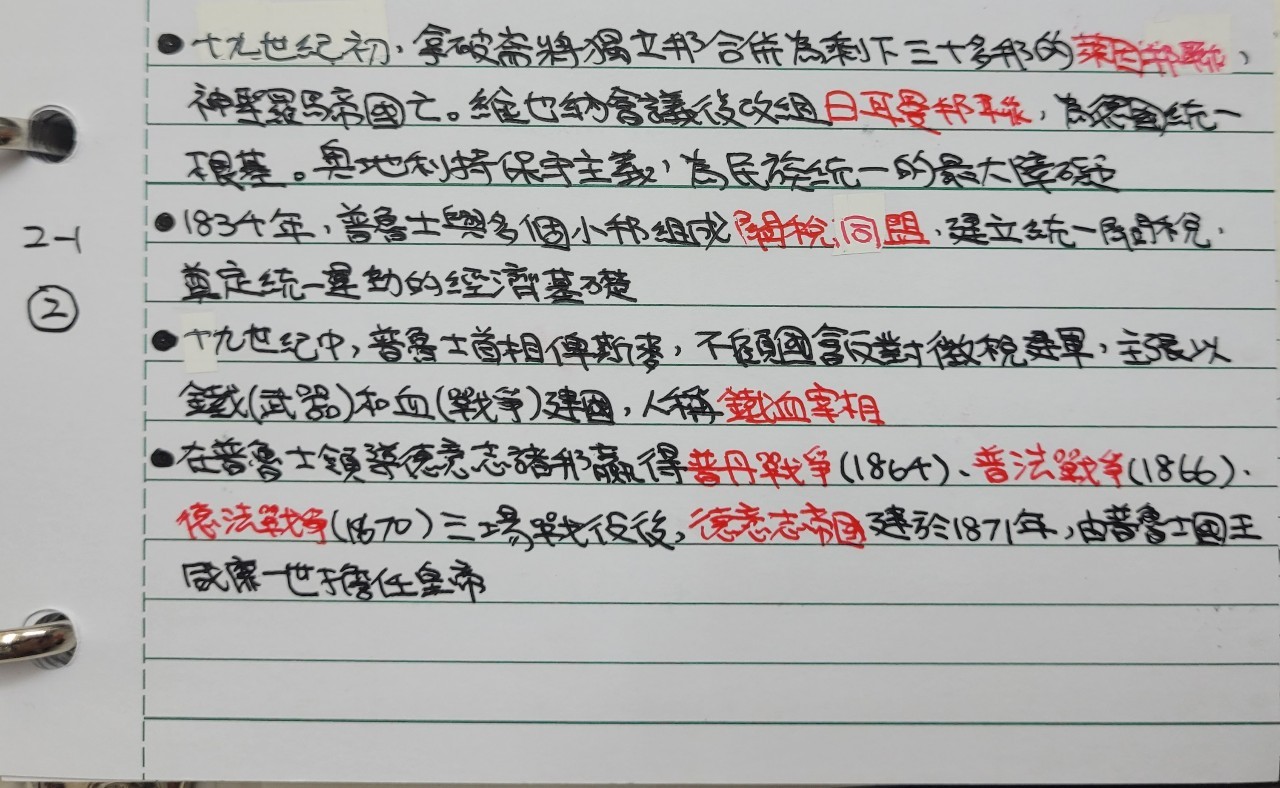 ●十九世紀初，拿破崙將獨立邦合併為剩下三十多邦的萊因邦聯，
神聖羅馬帝國亡。維也納會議後改組日耳曼邦聯，為德國統一
根基。奧地利持保守主義，為民族統一的最大障礙
●1834年，普魯士與多個小邦組成關稅同盟，建立統一關稅，
奠定統一運動的經濟基礎
2-1
②
●十九世紀中，普魯士首相俾斯麥，不顧國會反對徵稅建軍，主張以
鐵(武器)和血(戰爭)建國，人稱鐵血宰相
●在普魯士領導德意志諸邦贏得普丹戰爭(1864)、普法戰爭(1866)、
德法戰爭(1870)三場戰役後，德意志帝國建於1871年，由普魯士國王
威廉一世擔任皇帝